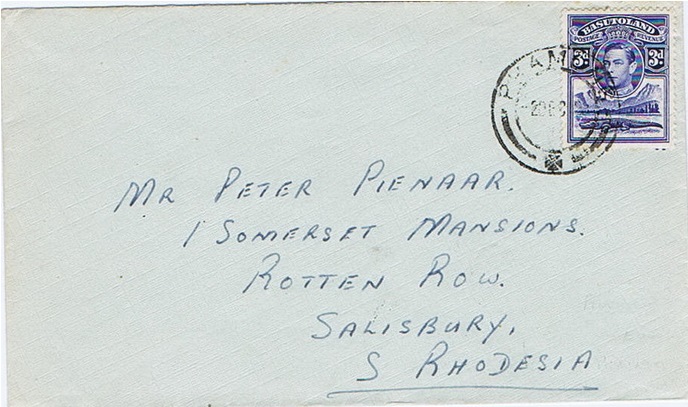 BASUTOLAND
POSTAGE REVENUE
3d 3d
MR PETER PIENAAR.
1 SOMERSET MANSIONS.
ROTTEN ROW.
SALISBURY,
S RHODESIA